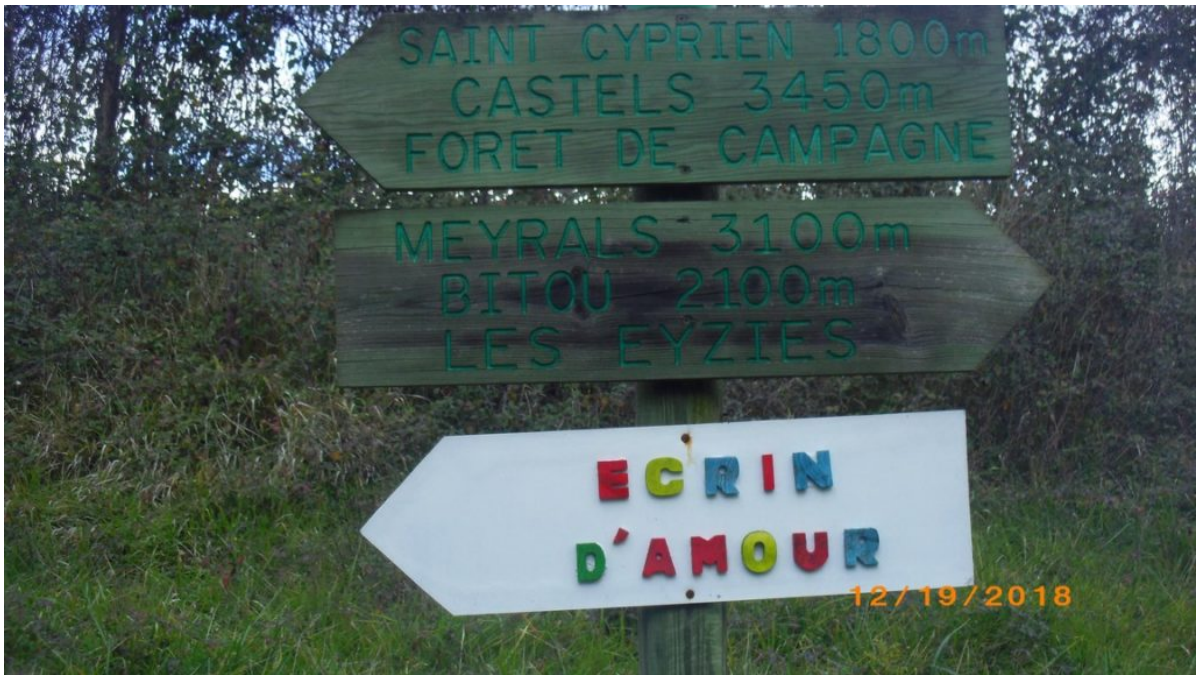 SAINT CYPRIEN 1800m
CASTELS 3450m
FORET DE CAMPAGNE
MEYRALS 3100m
BITOU 2100m
LES EYZIES
ECRIN
D'AMOUR
12/19/2018